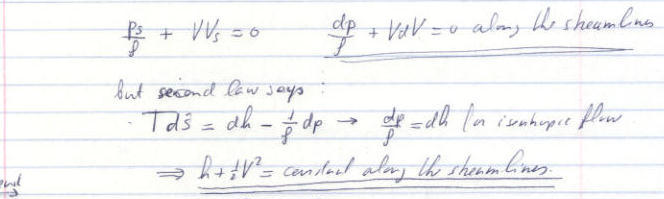 ps/ρ + VVs = 0    dp/ρ + VdV = 0 along the streamlines
but second law says :
Tds̃ = dh - 1/ρ dp → dp/ρ = dh for isentropic flow
⇒ h + ½V² = constant along the streamlines.